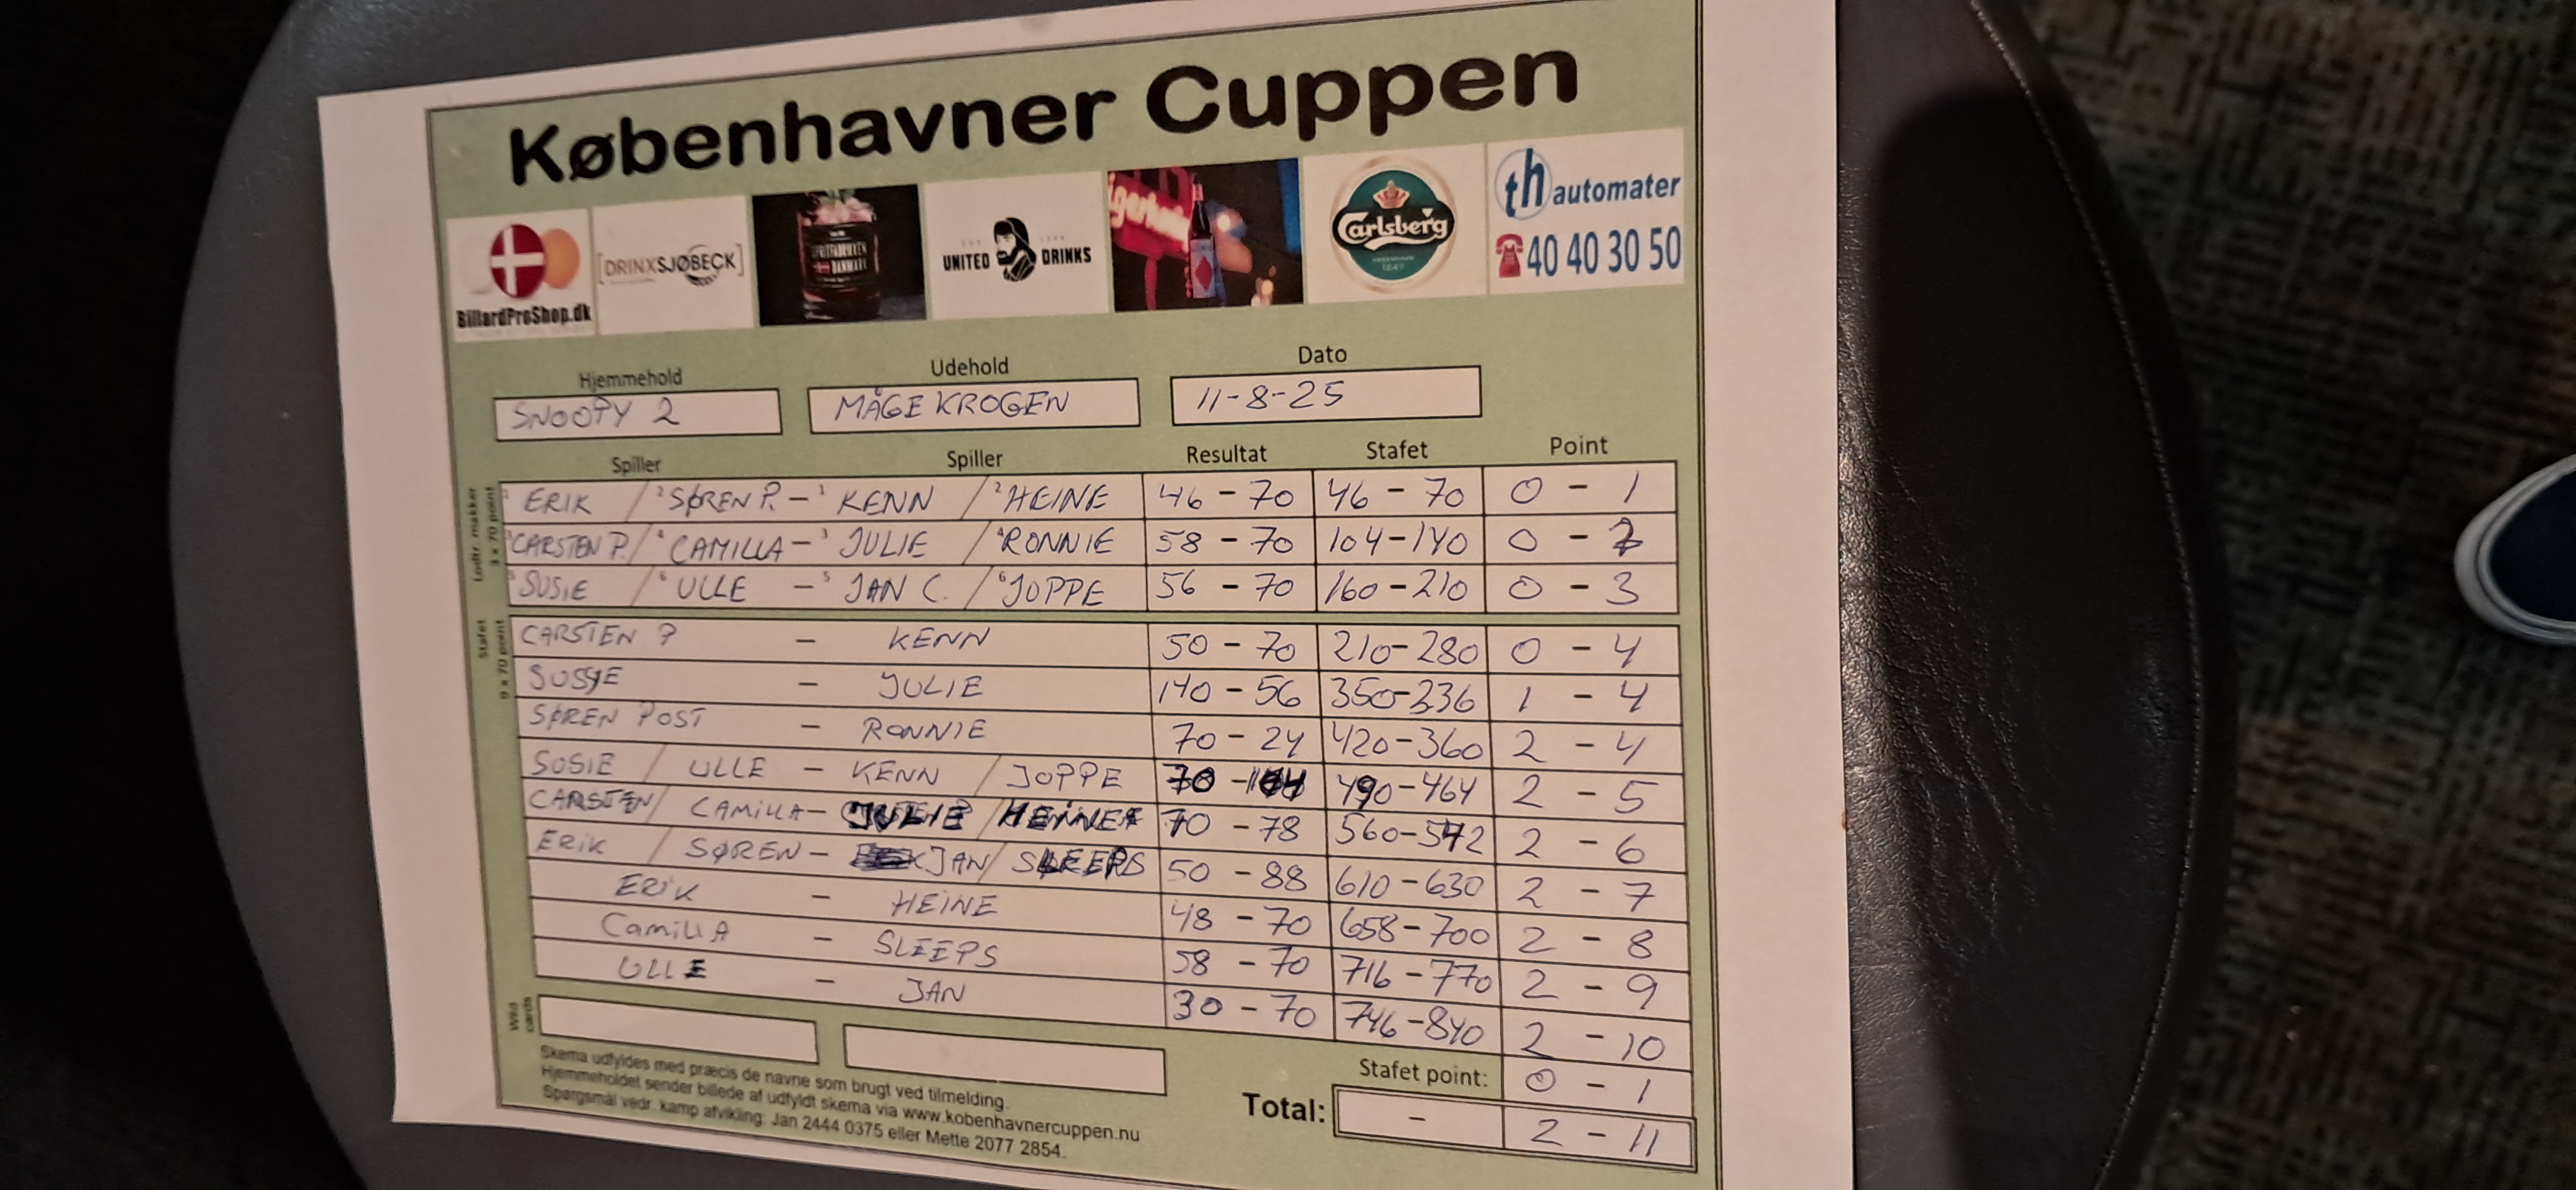 Københavner Cuppen
BillardProShop.dk
[DRINXSJØBECK]
DANMARK
UNITED DRINKS
Carlsberg
th automater
40 40 30 50
Hjemmehold Udehold Dato
SNOOPY 2 MÅGE KROGEN 11-8-25
Spiller Spiller Resultat Stafet Point
Lodtr. makker
3 x 70 point
1 ERIK / 2 SØREN P. - 1 KENN / 2 HEINE 46 - 70 46 - 70 0 - 1
3 CARSTEN P. / 4 CAMILLA - 3 JULIE / 4 RONNIE 58 - 70 104-140 0 - 2
5 SUSIE / 6 ULLE - 5 JAN C. / 6 JOPPE 56 - 70 160-210 0 - 3
Stafet
9 x 70 point
CARSTEN P - KENN 50 - 70 210-280 0 - 4
SUSIE - JULIE 140 - 56 350-336 1 - 4
SØREN POST - RONNIE 70 - 24 420-360 2 - 4
SUSIE / ULLE - KENN / JOPPE 70 - 104 490-464 2 - 5
CARSTEN / CAMILLA - JULIE / HEINE 70 - 78 560-542 2 - 6
ERIK / SØREN - JAN / SLEEPS 50 - 88 610-630 2 - 7
ERIK - HEINE 48 - 70 658-700 2 - 8
CamillA - SLEEPS 58 - 70 716-770 2 - 9
ULLE - JAN 30 - 70 746-840 2 - 10
Wild cards
Stafet point: 0 - 1
Total: - 2 - 11
Skema udfyldes med præcis de navne som brugt ved tilmelding.
Hjemmeholdet sender billede af udfyldt skema via www.kobenhavnercuppen.nu
Spørgsmål vedr. kamp afvikling: Jan 2444 0375 eller Mette 2077 2854.